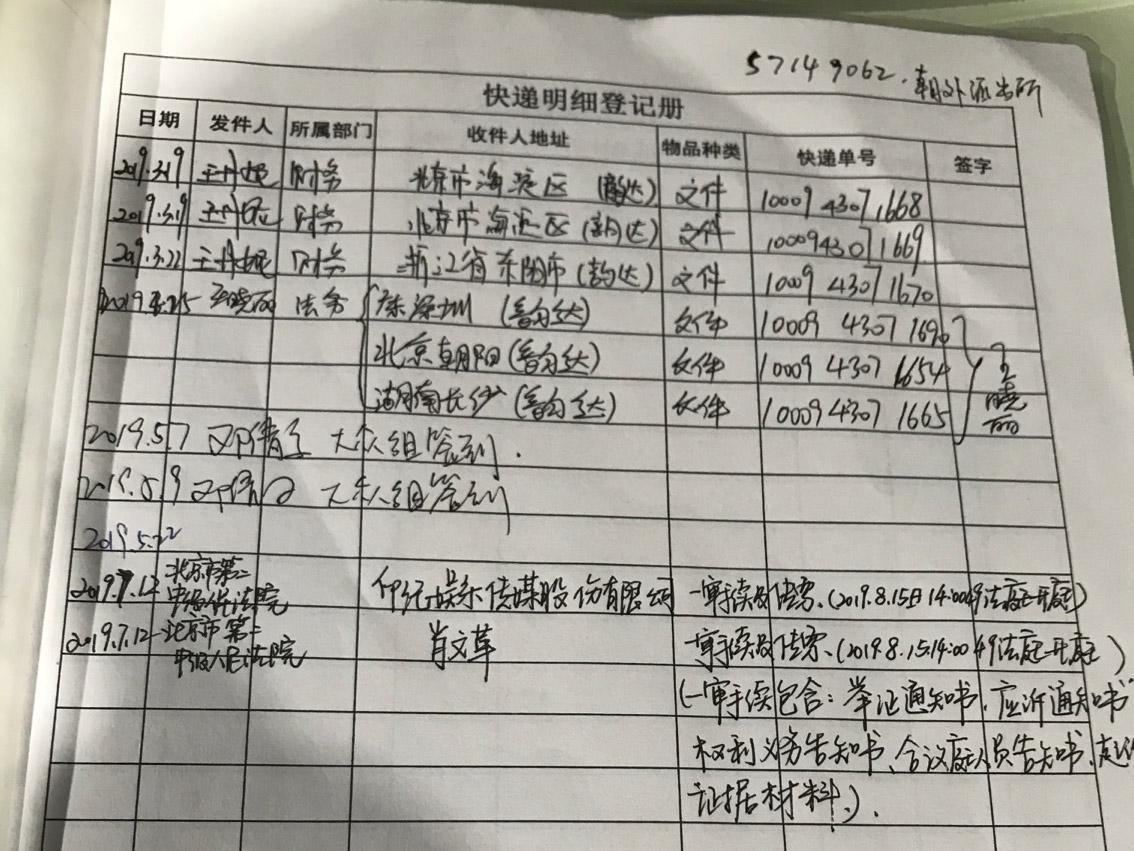 57149062. 朝外派出所
快递明细登记册
日期 发件人 所属部门 收件人地址 物品种类 快递单号 签字
2019.3.19 王丹妮 财务 北京市海淀区 (韵达) 文件 10009 4307 1668
2019.3.19 王丹妮 财务 北京市海淀区 (韵达) 文件 10009 4307 1669
2019.3.22 王丹妮 财务 浙江省东阳市 (韵达) 文件 10009 4307 1670
法务 深圳 (韵达) 文件 10009 4307 1690
北京朝阳 (韵达) 文件 10009 4307 1654
湖南长沙 (韵达) 文件 10009 4307 1665
晓丽
2019.5.7 大众组签到.
签到
2019.5.22
2019.7.12 北京市第二中级人民法院 印纪娱乐传媒股份有限公司 一审手续及传票、(2019.8.15日14:00 49法庭开庭)
2019.7.12 北京市第二中级人民法院 肖文革 一审手续及传票、(2019.8.15 14:00 49法庭开庭)
(一审手续包含: 举证通知书、应诉通知书
权利义务告知书、合议庭人员告知书、
证据材料、).